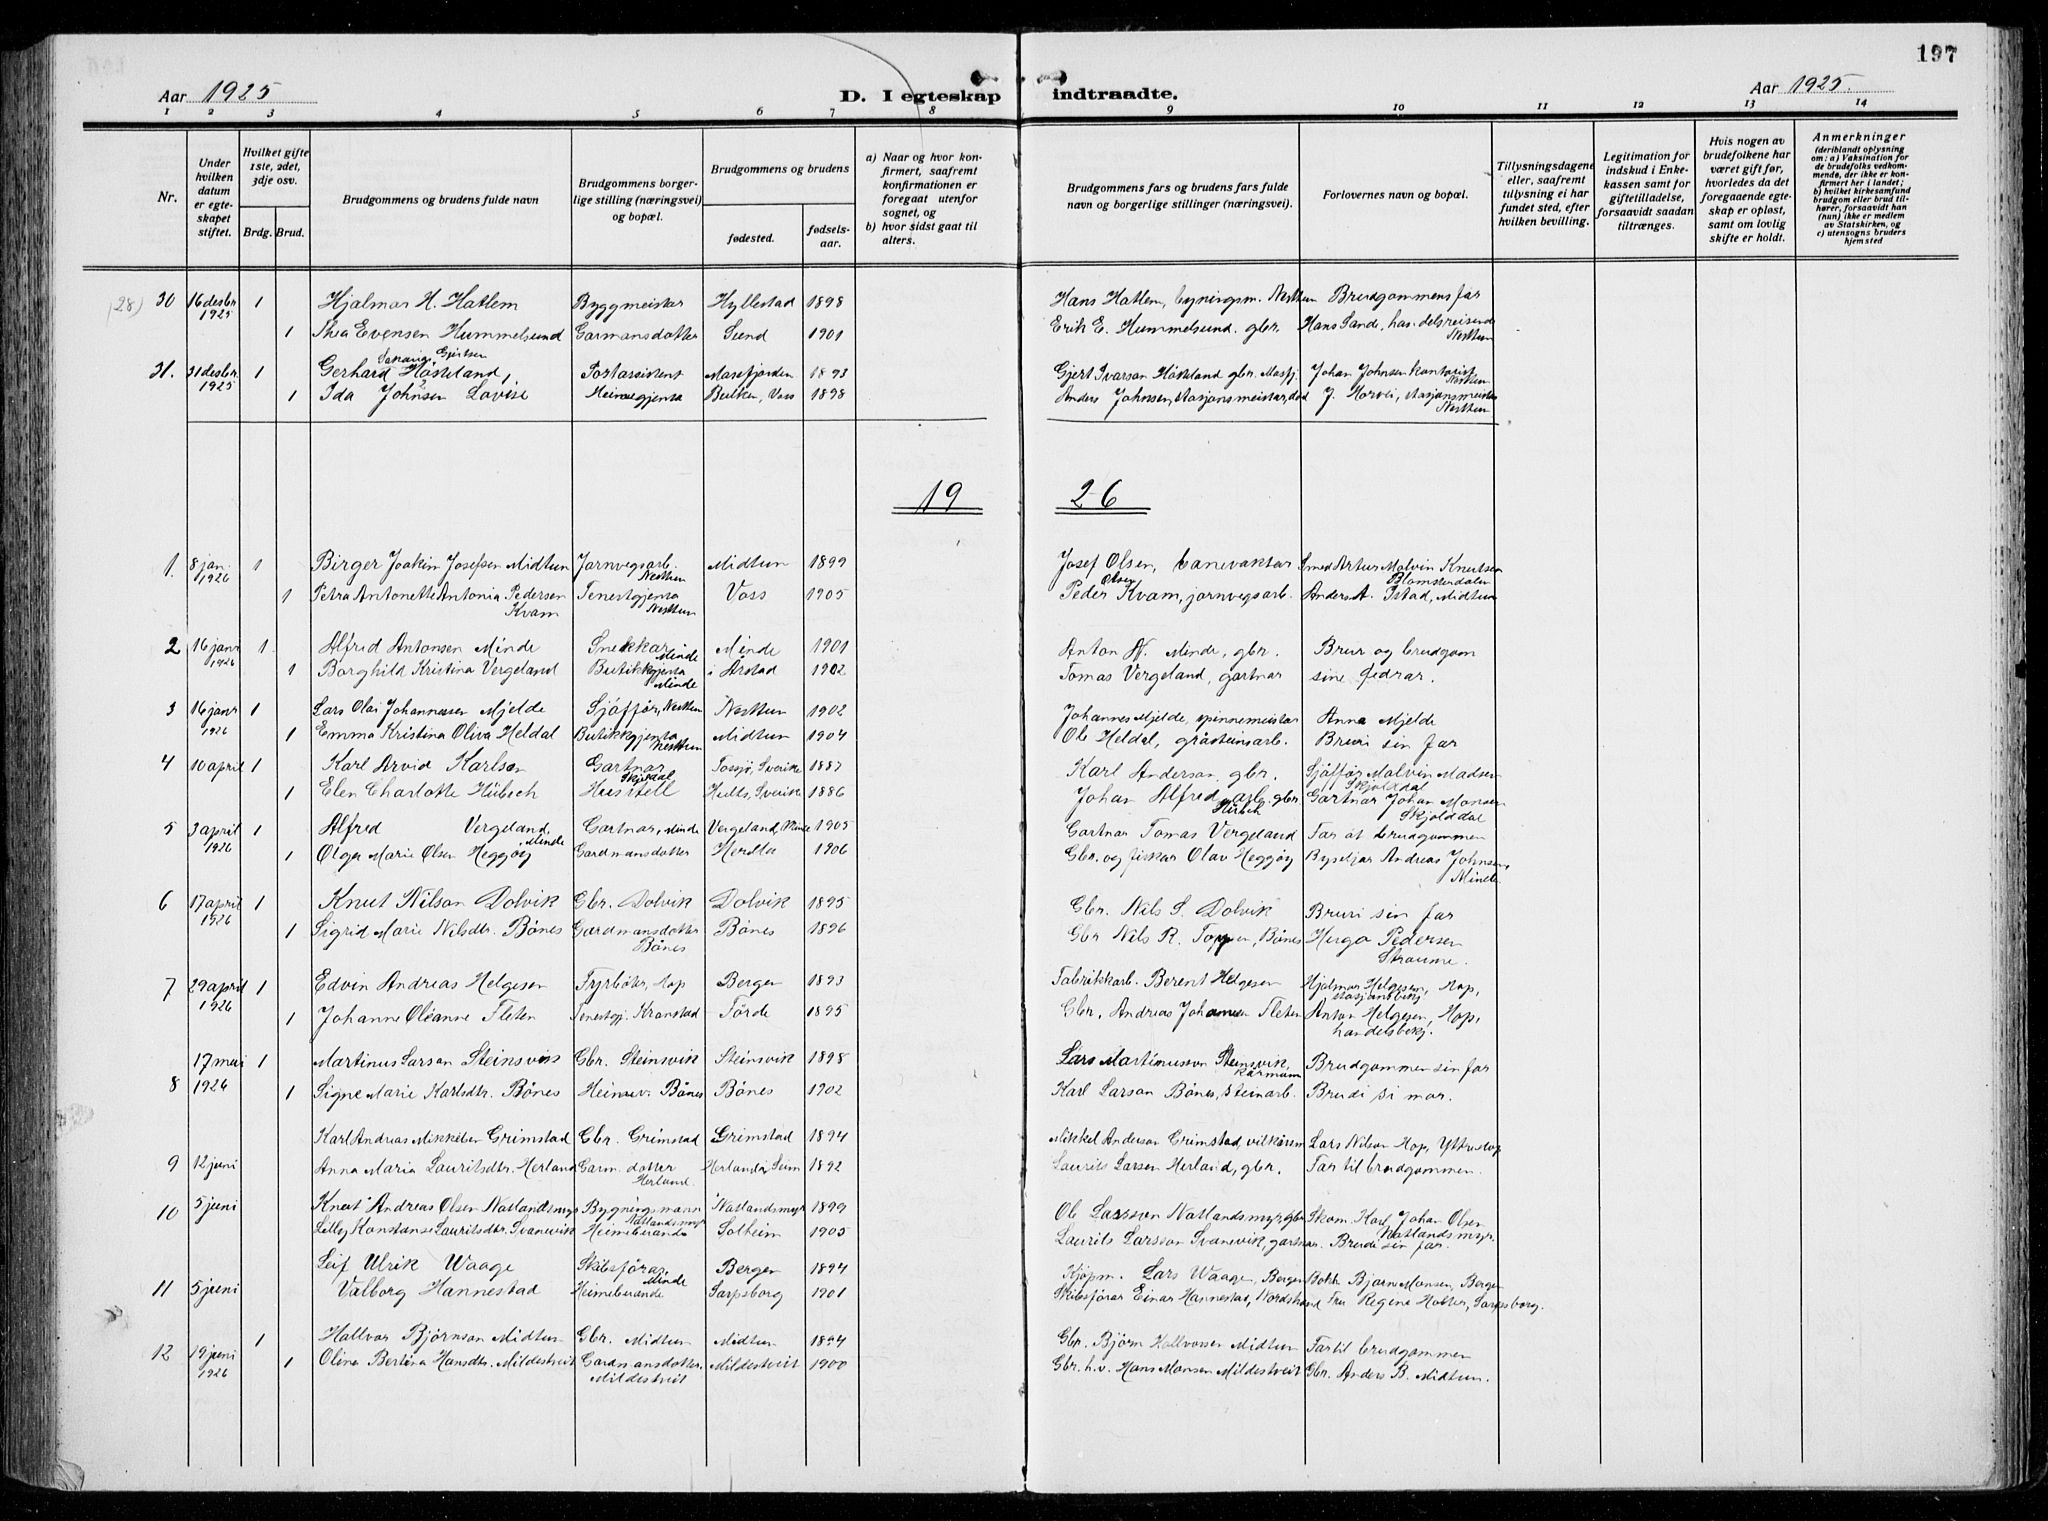 197
Aar 1925 D. I egteskap indtraadte. Aar 1925.
1 2 3 4 5 6 7 8 9 10 11 12 13 14
Nr.
Under hvilken datum er egteskapet stiftet.
Hvilket gifte 1ste, 2det, 3dje osv.
Brdg. Brud.
Brudgommens og brudens fulde navn
Brudgommens borgerlige stilling (næringsvei) og bopæl.
Brudgommens og brudens
fødested.
fødselsaar.
a) Naar og hvor konfirmert, saafremt konfirmationen er foregaat utenfor sognet, og
b) hvor sidst gaat til alters.
Brudgommens fars og brudens fars fulde navn og borgerlige stillinger (næringsvei).
Forlovernes navn og bopæl.
Tillysningsdagene eller, saafremt tillysning ei har fundet sted, efter hvilken bevilling.
Legitimation for indskud i Enkekassen samt for giftetilladelse, forsaavidt saadan tiltrænges.
Hvis nogen av brudefolkene har været gift før, hvorledes da det foregaaende egteskap er opløst, samt om lovlig skifte er holdt.
Anmerkninger (deriblandt oplysning om: a) Vaksination for de brudefolks vedkommende, der ikke er konfirmert her i landet; b) hvilket kirkesamfund brudgom eller brud tilhører, forsaavidt han (hun) ikke er medlem av Statskirken, og c) utensogns bruders hjemsted
(28) 30 16 desbr. 1925 1 Hjalmar H. Hatlem Byggmeister Hyllestad 1898 Hans Hatlem, bygningsm. Nesttun Brudgommens far
1 Thea Evensen Hummelsund Garmansdotter Sund 1901 Erik E. Hummelsund. gbr. Hans Sande, handelsreisende Nesttun
31. 31 desbr. 1925 1 Gerhard Gjertsen Høsteland, Postassistent Masfjorden 1893 Gjert Ivarson Høsteland gbr. Masfj. Johan Johnsen kontorist Nesttun
1 Ida Johnsen Lovise Heimegjenta Bulken, Voss 1898 Anders Johnsen, stasjonsmeister, død J. Horvei, stasjonsmeister Nesttun
19 26
1. 8 jan. 1926 1 Birger Joakim Josefsen Midtun Jarnvegsarb. Nesttun Midtun 1899 Josef Olsen, banevaktar Smed Artur Malvin Knutsen Blomsterdalen
1 Petra Antonette Antonia Pedersen Kvam Tenestgjenta Nesttun Voss 1905 Peder Olsen Kvam, jarnvegsarb. Anders A. Istad, Midtun
2 16 janr 1926 1 Alfred Antonsen Minde Snekkar Minde Minde 1901 Anton N. Minde, gbr. Brur og brudgom
1 Borghild Kristina Vergeland Butikkgjenta Minde i Årstad 1902 Tomas Vergeland, gartnar sine fedrar.
3 16 janr 1926 1 Lars Olai Johannessen Mjelde Sjåffør, Nesttun Nesttun 1902 Johannes Mjelde, spinnemeister Anna Mjelde
1 Emma Kristina Oliva Heldal Butikkgjenta Nesttun Midtun 1904 Ole Heldal, gråsteinsarb. Bruri sin far
4 10 april 1 Karl Arvid Karlson Gartnar Skjoldal Tossjö, Sverike 1887 Karl Anderson, gbr. Sjåffør Malvin Madsen Skjolddal
1 Elen Charlotte Hübech Husstell Hults, Sverike 1886 Johan Alfred Hübech gbr. Gartnar Johan Monsen Skjolddal
5 3 april 1926 1 Alfred Vergeland, Minde Gartnar, Minde Vergeland, Minde 1905 Gartnar Tomas Vergeland Far åt brudgommen
1 Olga Marie Olsen Heggøy Gardmansdotter Herdla 1906 Gbr. og fiskar Olav Heggøy Byseljar Andreas Johnsen, Minde
6 17 april 1926 1 Knut Nilson Dolvik Gbr. Dolvik Dolvik 1895 Gbr. Nils S. Dolvik Bruri sin far
1 Sigrid Marie Nilsdtr. Bönes Gardmansdotter Bönes Bönes 1896 Gbr Nils R. Toppen, Bönes Hugo Pedersen Straume.
7 29 april 1926 1 Edvin Andreas Helgesen Fyrbøter, Hop Bergen 1893 Fabrikkarb. Berent Helgesen Hjalmar Helgesen, Hop, stasjonsbetj.
1 Johanne Oleanne Fleten Tenestgj. Kronstad Førde 1895 Gbr. Andreas Johansen Fleten Anton Helgesen, Hop, handelsbetj.
8 17 mai 1926 1 Martinus Larsen Steinsvik Gbr. Steinsvik Steinsvik 1898 Lars Martinusson Steinsvik, kårmann Brudgommen sin far
1 Signe Marie Karlsdtr. Bönes Heimev. Bönes Bönes 1902 Karl Larson Bönes, steinarb. Brudi si mor.
9 12 juni Karl Andreas Mikkelsen Grimstad Gbr. Grimstad Grimstad 1894 Mikkel Anderson Grimstad, vilkårsm. Lars Nilson Hop, Ytrestop
Anna Maria Lauritsdtr. Herland Garm. dotter Herland Herland, Seim 1892 Laurits Larsen Herland, gbr. Far til brudgommen.
10 5 juni Knut Andreas Olsen Natlandsmyr Bygningsmann Natlandsmyr Natlandsmyr 1899 Ole Larsson Natlandsmyr gbr. Skom. Karl Johan Olsen Natlandsmyr.
Lilly Konstanse Lauritsdtr. Svanevik Heimeverande Solheim 1905 Laurits Larsson Svanevik, gartnar. Brudi sin far.
11 5 juni Leif Ulrik Waage Skibsförar, Minde Bergen 1894 Kjøpm. Lars Waage, Bergen Bokh. Bjarne Monsen, Bergen
Valborg Hannestad Heimeverande Sarpsborg 1901 Skibsförar Einar Hannestad, Nordstrand Fru Regine Holter, Sarpsborg.
12 19 juni 1926 1 Hallvar Bjørnson Midtun Gbr. Midtun Midtun 1894 Gbr. Björn Hallvorsen Midtun Far til brudgommen
1 Olina Bertina Hansdtr. Mildestveit Gardmansdotter, Mildestveit Mildestveit 1900 Gbr. h.v. Hans Monsen Mildestveit Gbr. Anders B. Midtun.